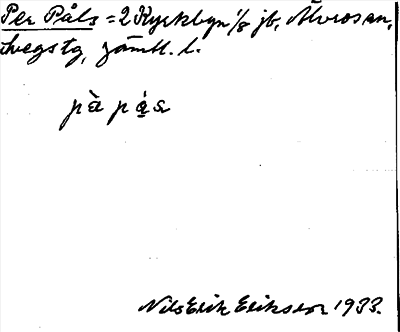 Per Påls = 2 Kyrkbyn 1/8 jb, Älvros sn,
Svegs tg, Jämtl. l.
pὰ pá̱s
Nils Erik Eriksson 1933.